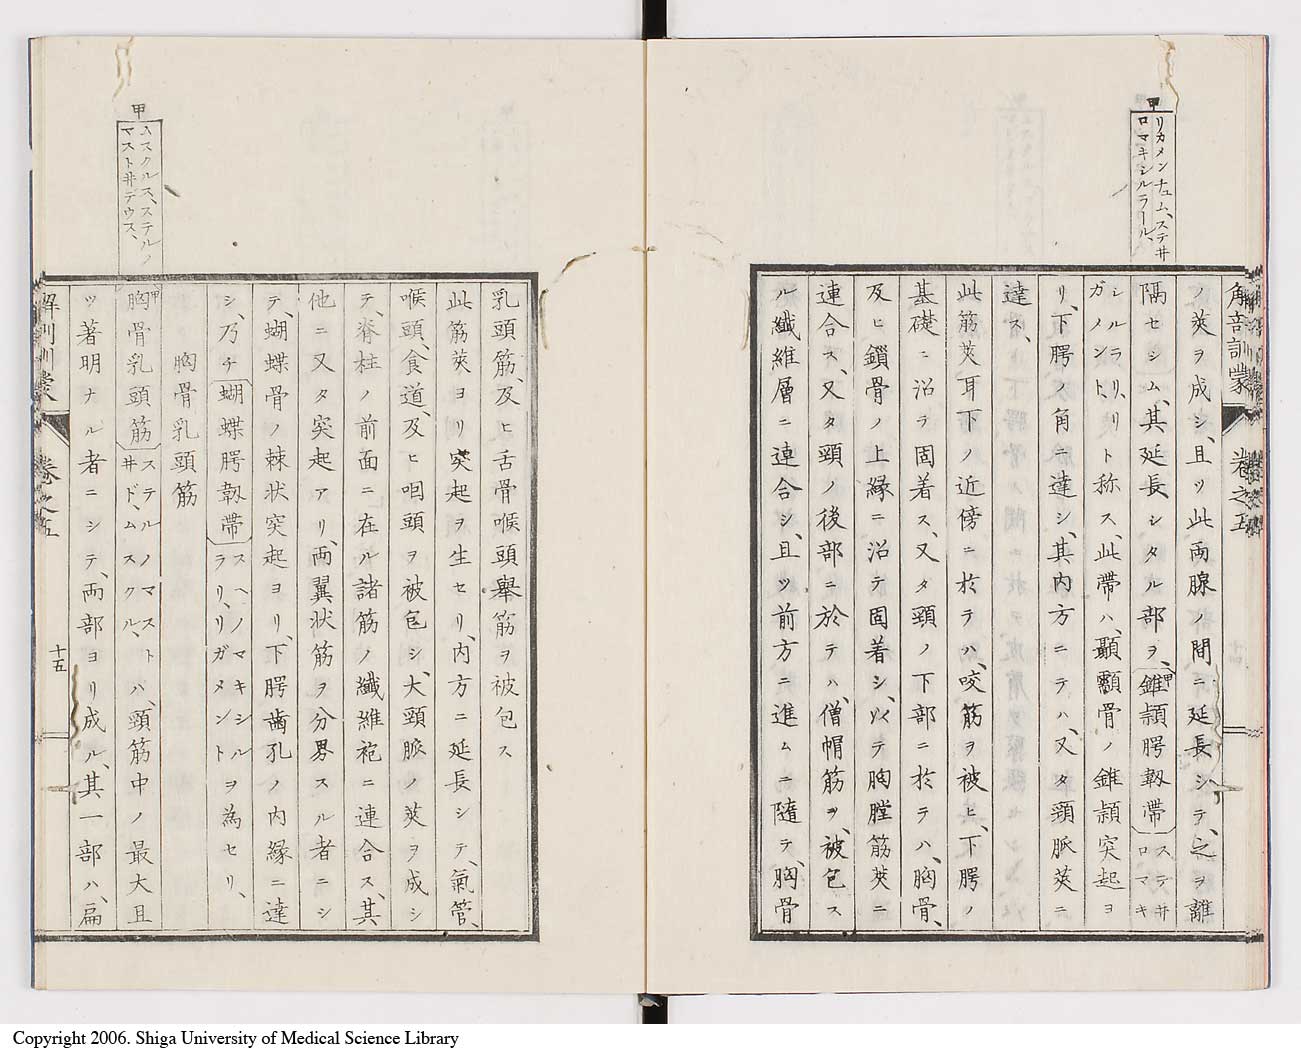 甲
リガメンチュム、ステ井
ロマキシルラール、
解剖訓蒙
卷之五
ノ莢ヲ成シ、且ツ此両腺ノ間ニ延長シテ、之ヲ離
隔セシム、其延長シタル部ヲ、甲錐頴腭靱帶ステ井ロマキ
シルラリ、リガメント、ト称ス、此帶ハ、顳顬骨ノ錐頴突起ヨ
リ、下腭ノ角ニ達シ、其内方ニテハ、又タ頸脈莢ニ
達ス、
此筋莢、耳下ノ近傍ニ於テハ、咬筋ヲ被ヒ、下腭ノ
基礎ニ沿テ固着ス、又タ頸ノ下部ニ於テハ、胸骨、
及ヒ鎖骨ノ上縁ニ沿テ固着シ、以テ胸膛筋莢ニ
連合ス、又タ頸ノ後部ニ於テハ、僧帽筋ヲ、被包ス
ル纖維層ニ連合シ、且ツ前方ニ進ムニ隨テ、胸骨
乳頭筋、及ヒ舌骨喉頭舉筋ヲ被包ス
此筋莢ヨリ突起ヲ生セリ、内方ニ延長シテ、氣管、
喉頭、食道、及ヒ咽頭ヲ被包シ、大頸脈ノ莢ヲ成シ
テ、脊柱ノ前面ニ在ル諸筋ノ纖維袍ニ連合ス、其
他ニ又タ突起アリ、両翼状筋ヲ分界スル者ニシ
テ、蝴蝶骨ノ棘状突起ヨリ、下腭齒孔ノ内縁ニ達
シ、乃チ蝴蝶腭靱帶スヘノマキシルラリ、リガメントヲ為セリ、
胸骨乳頭筋
甲胸骨乳頭筋ステルノマスト井ド、ムスクル、ハ、頸筋中ノ最大且
ツ著明ナル者ニシテ、両部ヨリ成ル、其一部ハ、扁
甲
ムスクルス、ステルノ
マスト井デウス、
解剖訓蒙
卷之五
十五
Copyright 2006. Shiga University of Medical Science Library